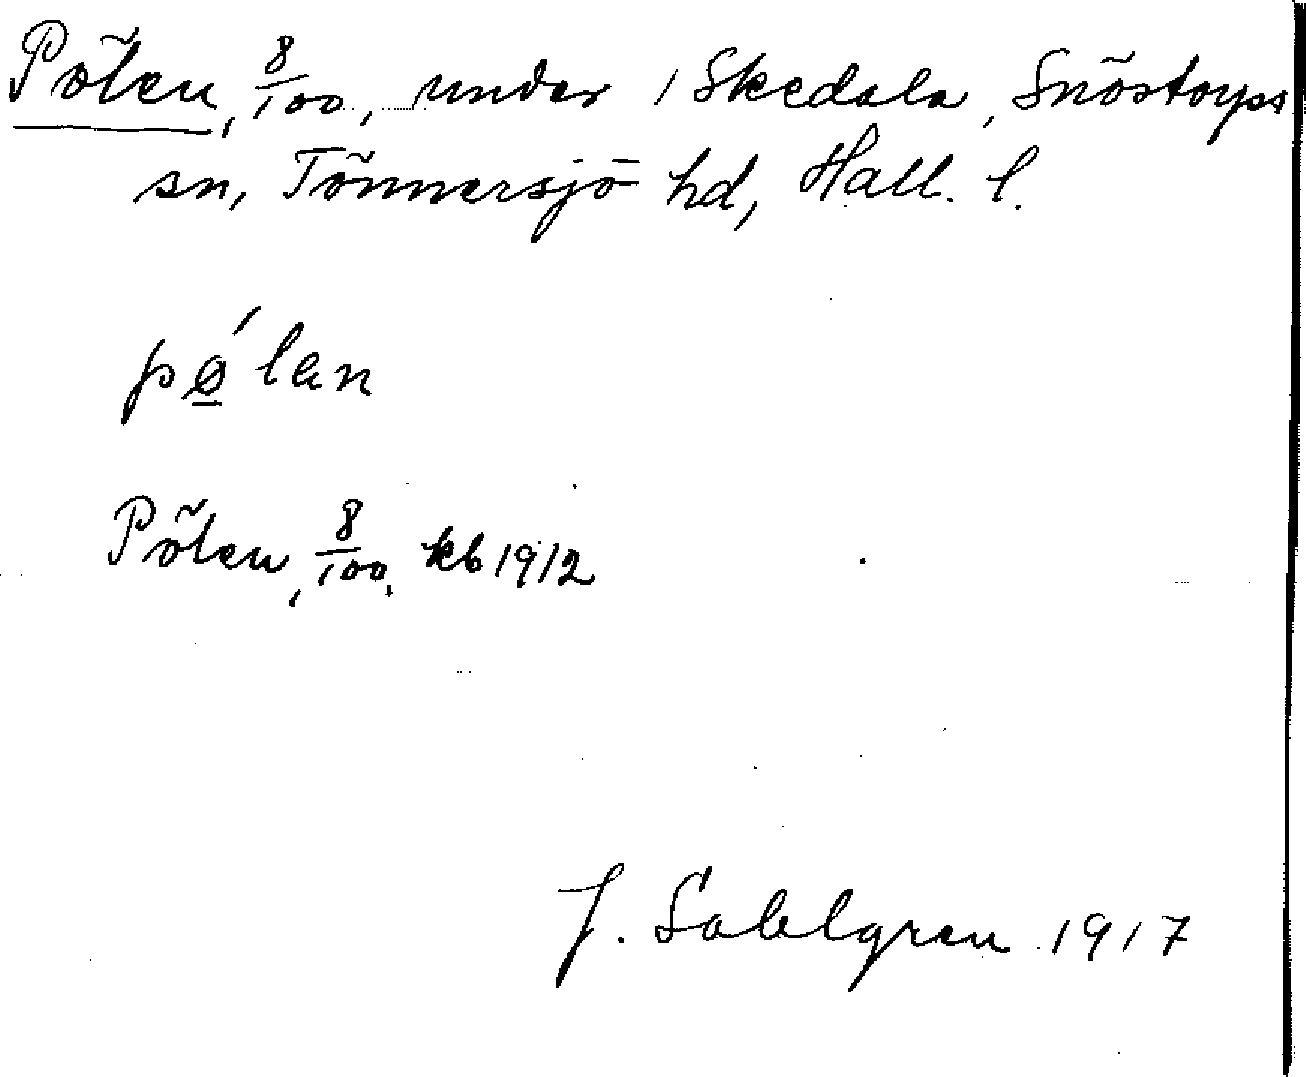 Pölen, 8/100, under 1 Skedala, Snöstorps
sn, Tönnersjö hd, Hall. l.
pø̲´lan
Pölen, 8/100, kb 1912
J. Sahlgren 1917